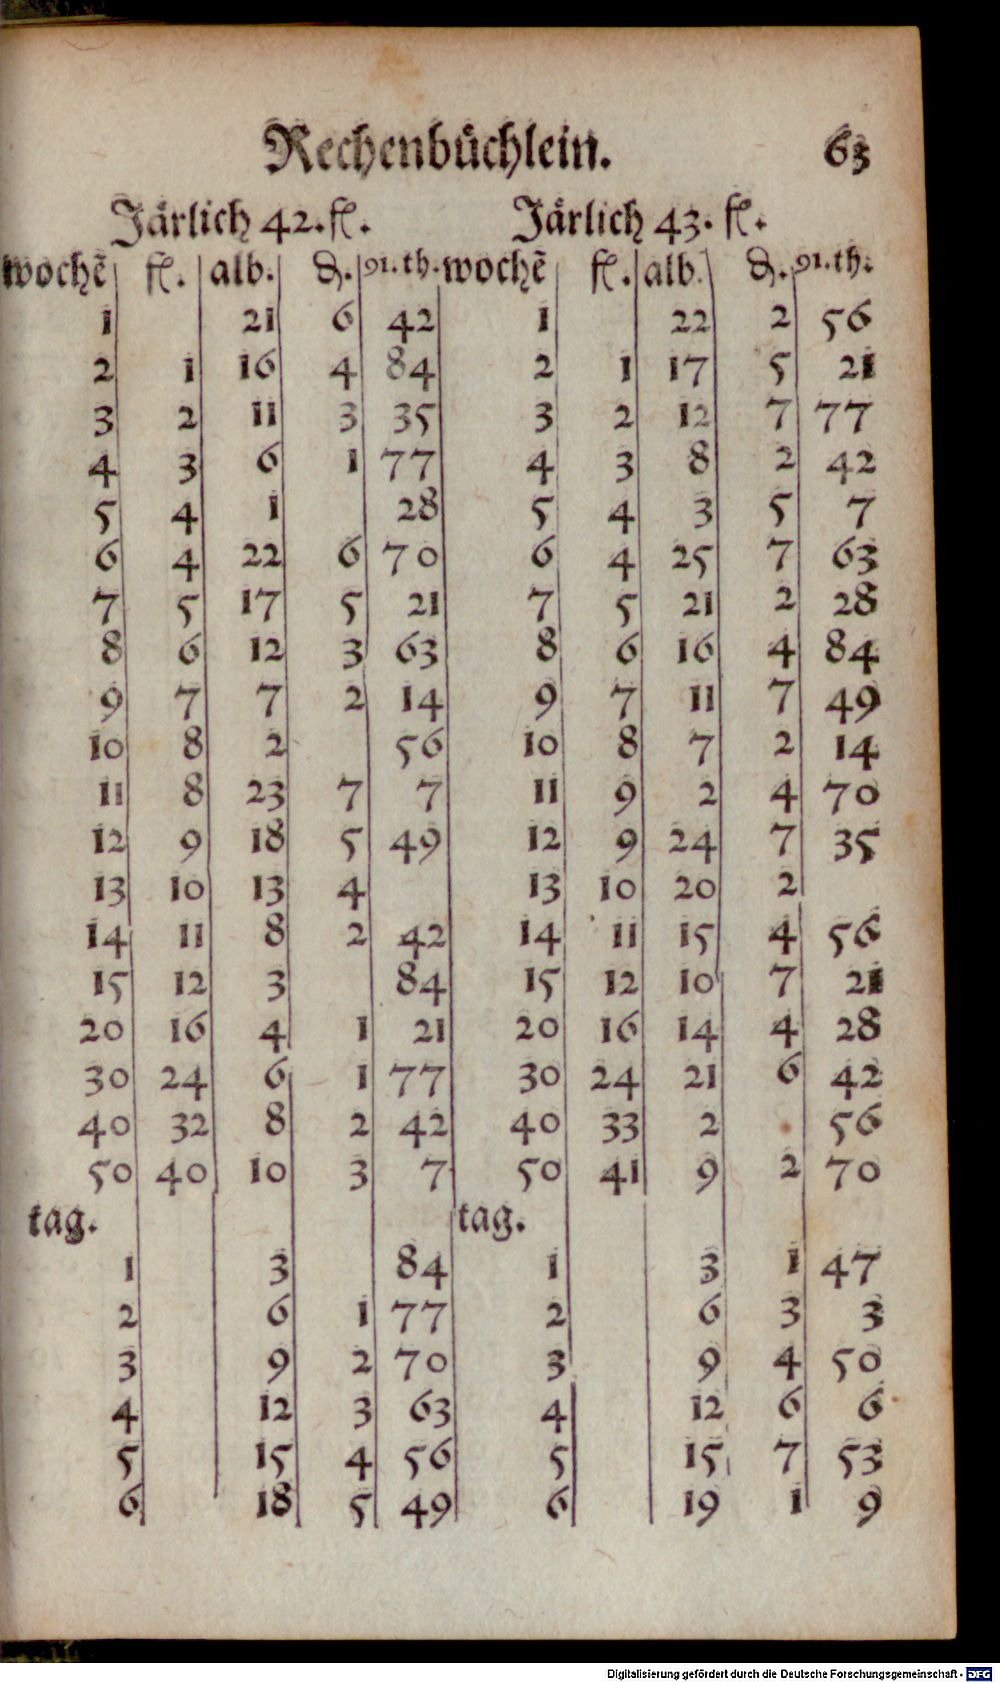 Rechenbüchlein. 63
Järlich 42. fl. Järlich 43. fl.
wochẽ fl. alb. ₰. 91. th. wochẽ fl. alb. ₰. 91. th:
1 21 6 42 1 22 2 56
2 1 16 4 84 2 1 17 5 21
3 2 11 3 35 3 2 12 7 77
4 3 6 1 77 4 3 8 2 42
5 4 1 28 5 4 3 5 7
6 4 22 6 70 6 4 25 7 63
7 5 17 5 21 7 5 21 2 28
8 6 12 3 63 8 6 16 4 84
9 7 7 2 14 9 7 11 7 49
10 8 2 56 10 8 7 2 14
11 8 23 7 7 11 9 2 4 70
12 9 18 5 49 12 9 24 7 35
13 10 13 4 13 10 20 2
14 11 8 2 42 14 11 15 4 56
15 12 3 84 15 12 10 7 21
20 16 4 1 21 20 16 14 4 28
30 24 6 1 77 30 24 21 6 42
40 32 8 2 42 40 33 2 56
50 40 10 3 7 50 41 9 2 70
tag. tag.
1 3 84 1 3 1 47
2 6 1 77 2 6 3 3
3 9 2 70 3 9 4 50
4 12 3 63 4 12 6 6
5 15 4 56 5 15 7 53
6 18 5 49 6 19 1 9
Digitalisierung gefördert durch die Deutsche Forschungsgemeinschaft - DFG